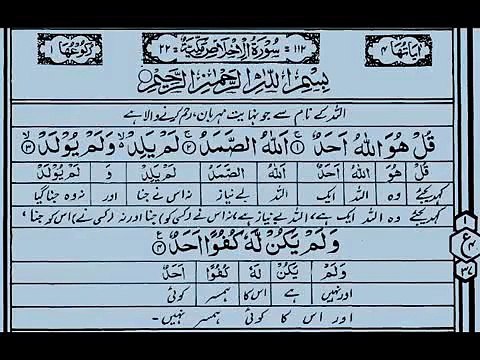 اٰیَاتُهَا ٤ ١١٢ سُوْرَةُ الْاِخْلَاصِ مَکِّیَّةٌ ٢٢ رُکُوْعُهَا ١
بِسْمِ اللّٰهِ الرَّحْمٰنِ الرَّحِیْمِ
اللہ کے نام سے جو نہایت مہربان، رحم کرنے والا ہے
قُلْ هُوَ اللّٰهُ اَحَدٌ ١ اَللّٰهُ الصَّمَدُ ٢ لَمْ یَلِدْ وَلَمْ یُوْلَدْ ٣
قُلْ هُوَ اللّٰهُ اَحَدٌ اَللّٰهُ الصَّمَدُ لَمْ یَلِدْ وَ لَمْ یُوْلَدْ
کہہ دیجئے وہ اللہ ایک اللہ بے نیاز نہ اس نے جنا اور نہ وہ جنا گیا
کہہ دیجئے وہ اللہ ایک ہے، اللہ بے نیاز ہے، نہ اس نے (کسی کو) جنا اور نہ (کسی نے) اس کو جنا،
وَلَمْ یَکُنْ لَّهٗ کُفُوًا اَحَدٌ ٤
وَلَمْ یَکُنْ لَهٗ کُفُوًا اَحَدٌ
اور نہیں ہے اس کا ہمسر کوئی
اور اس کا کوئی ہمسر نہیں۔
١
ع
٤
٣٧